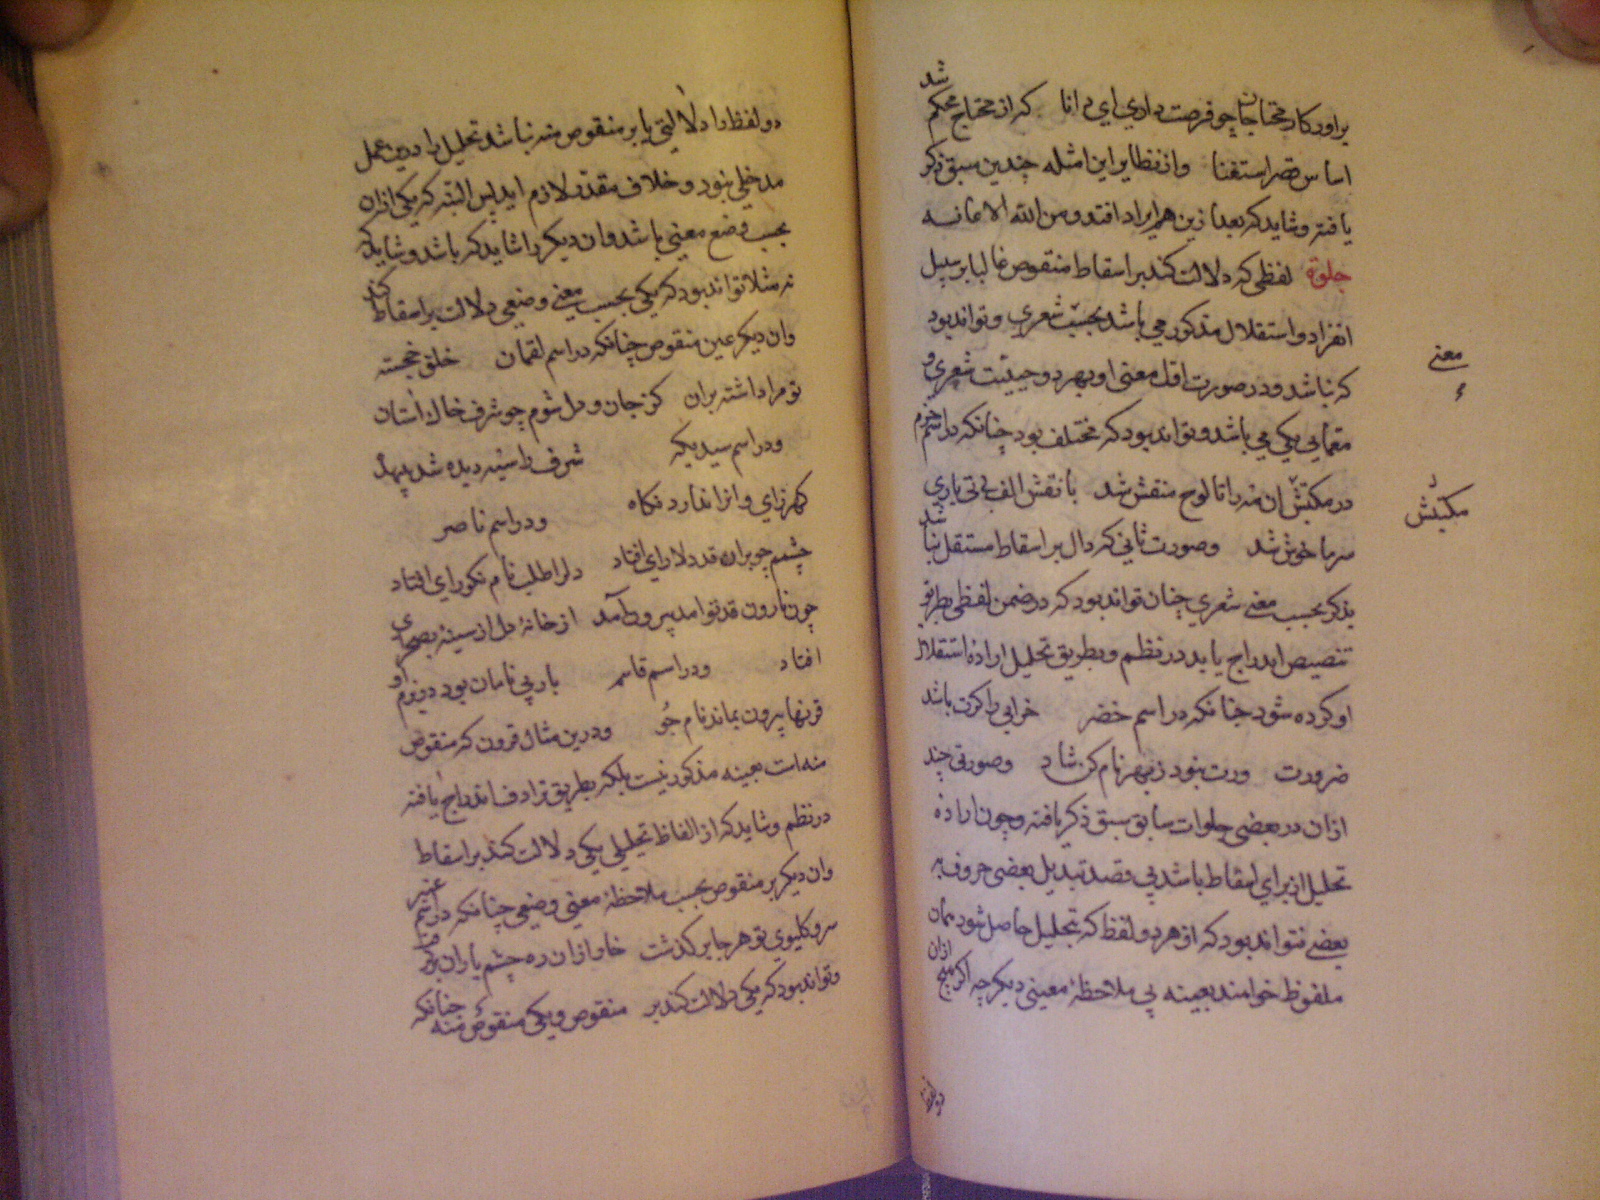 براور کار محتاجان چو فرصت داری ای دانا که از محتاج محکم شد
اساس قصر استغنا و از نظایر این امثله چندین سبق ذکر
یافته و شاید که بعد ازین هم ایراد افتد و من الله الاعانه
جلوة لفظی که دلالت کند بر اسقاط منقوص غالبا بر سبیل
انفراد و استقلال مذکور می باشد بحسب شعری و تواند بود
که نباشد و در صورت اول معنی او بهر دو حیثیت شعری و
معمایی یکی می باشد و تواند بود که مختلف بود چنانکه در اسم خرم
در مکتبش ان مه را تا لوح منقش شد با نقش الف بی تی یاری
سر ما خوش شد و صورت ثانی که دال بر اسقاط مستقل نباشد
بذکر بحسب معنی شعری چنان تواند بود که در ضمن لفظی بطریق
تنصیص اندراج یابد در نظم و بطریق تحلیل اراده استقلال
او کرده شود چنانکه در اسم خضر خرابی را کرت باشد
ضرورت ورت نبود زبهر نام کن شاد و صورتی چند
ازان در بعضی جلوات سابق سبق ذکر یافته و چون اراده
تحلیل از برای اسقاط باشد بی قصد تبدیل بعضی حروف به
بعضی نتواند بود که از هر دو لفظ که بتحلیل حاصل شود همان
ملفوظ خوامند بعینه بی ملاحظهٔ معینی دیکر چه اکر هیچ ازان
دو لفظ
معنی
مکتبش
دو لفظ را دلالتی یا بر منقوص منه نباشد تحلیل را درین عمل
مدخلی نبود و خلاف مقدر لازم اید پس البته که یکی ازان
بحسب وضع معنی باشد و ان دیکر را شاید که باشد و شاید که
نه مثلا تواند بود که یکی بحسب معنی وضعی دلالت بر اسقاط کند
وان دیکر عین منقوص چنانکه در اسم لقمان خلق خجسته
تو مرا داشته بران کز جان و دل شوم چو شرف خاک استان
و در اسم سیدیکه شرف را سیه دیده شد پیهد
کهر زای و انرا ندارد نکاه و در اسم ناصر
چشمم چو بران قد دلارای افتاد دلرا طلب نام نکورای افتاد
چون نارون قد تو امد بیرون آمد از خانهٔ دل از سینه بصحرای
افتاد و در اسم قاسم یار پی نامان بود در بزم او
قرنها بیرون بماند نام جو و درین مثال قرون که منقوص
منه است بعینه مذکور نیست بلکه بطریق ترادف اندراج یافته
در نظم و شاید که از الفاظ تحلیلی یکی دلالت کند بر اسقاط
وان دیکر بر منقوص بحسب ملاحظهٔ معنی وضعی چنانکه در اسم عنبر
سرو کلبوی تو هر جا بر کذشت خاو ازان ره چشم یاران
و تواند بود که یکی دلالت کند بر منقوص و یکی منقوص منه چنانکه